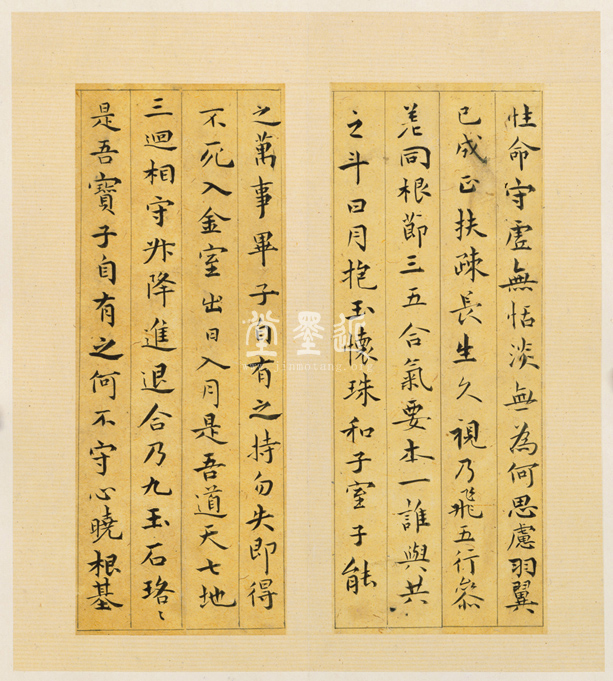 性命守虛無恬淡無為何思慮羽翼
已成正扶疎長生久視乃飛五行參
差同根節三五合氣要本一誰與共
之斗日月抱玉懷珠和子室子能
之萬事畢子自有之持勿失即得
不死入金室出日入月是吾道天七地
三迴相守升降進退合乃九玉石珞〻
是吾寶子自有之何不守心曉根基
近墨堂